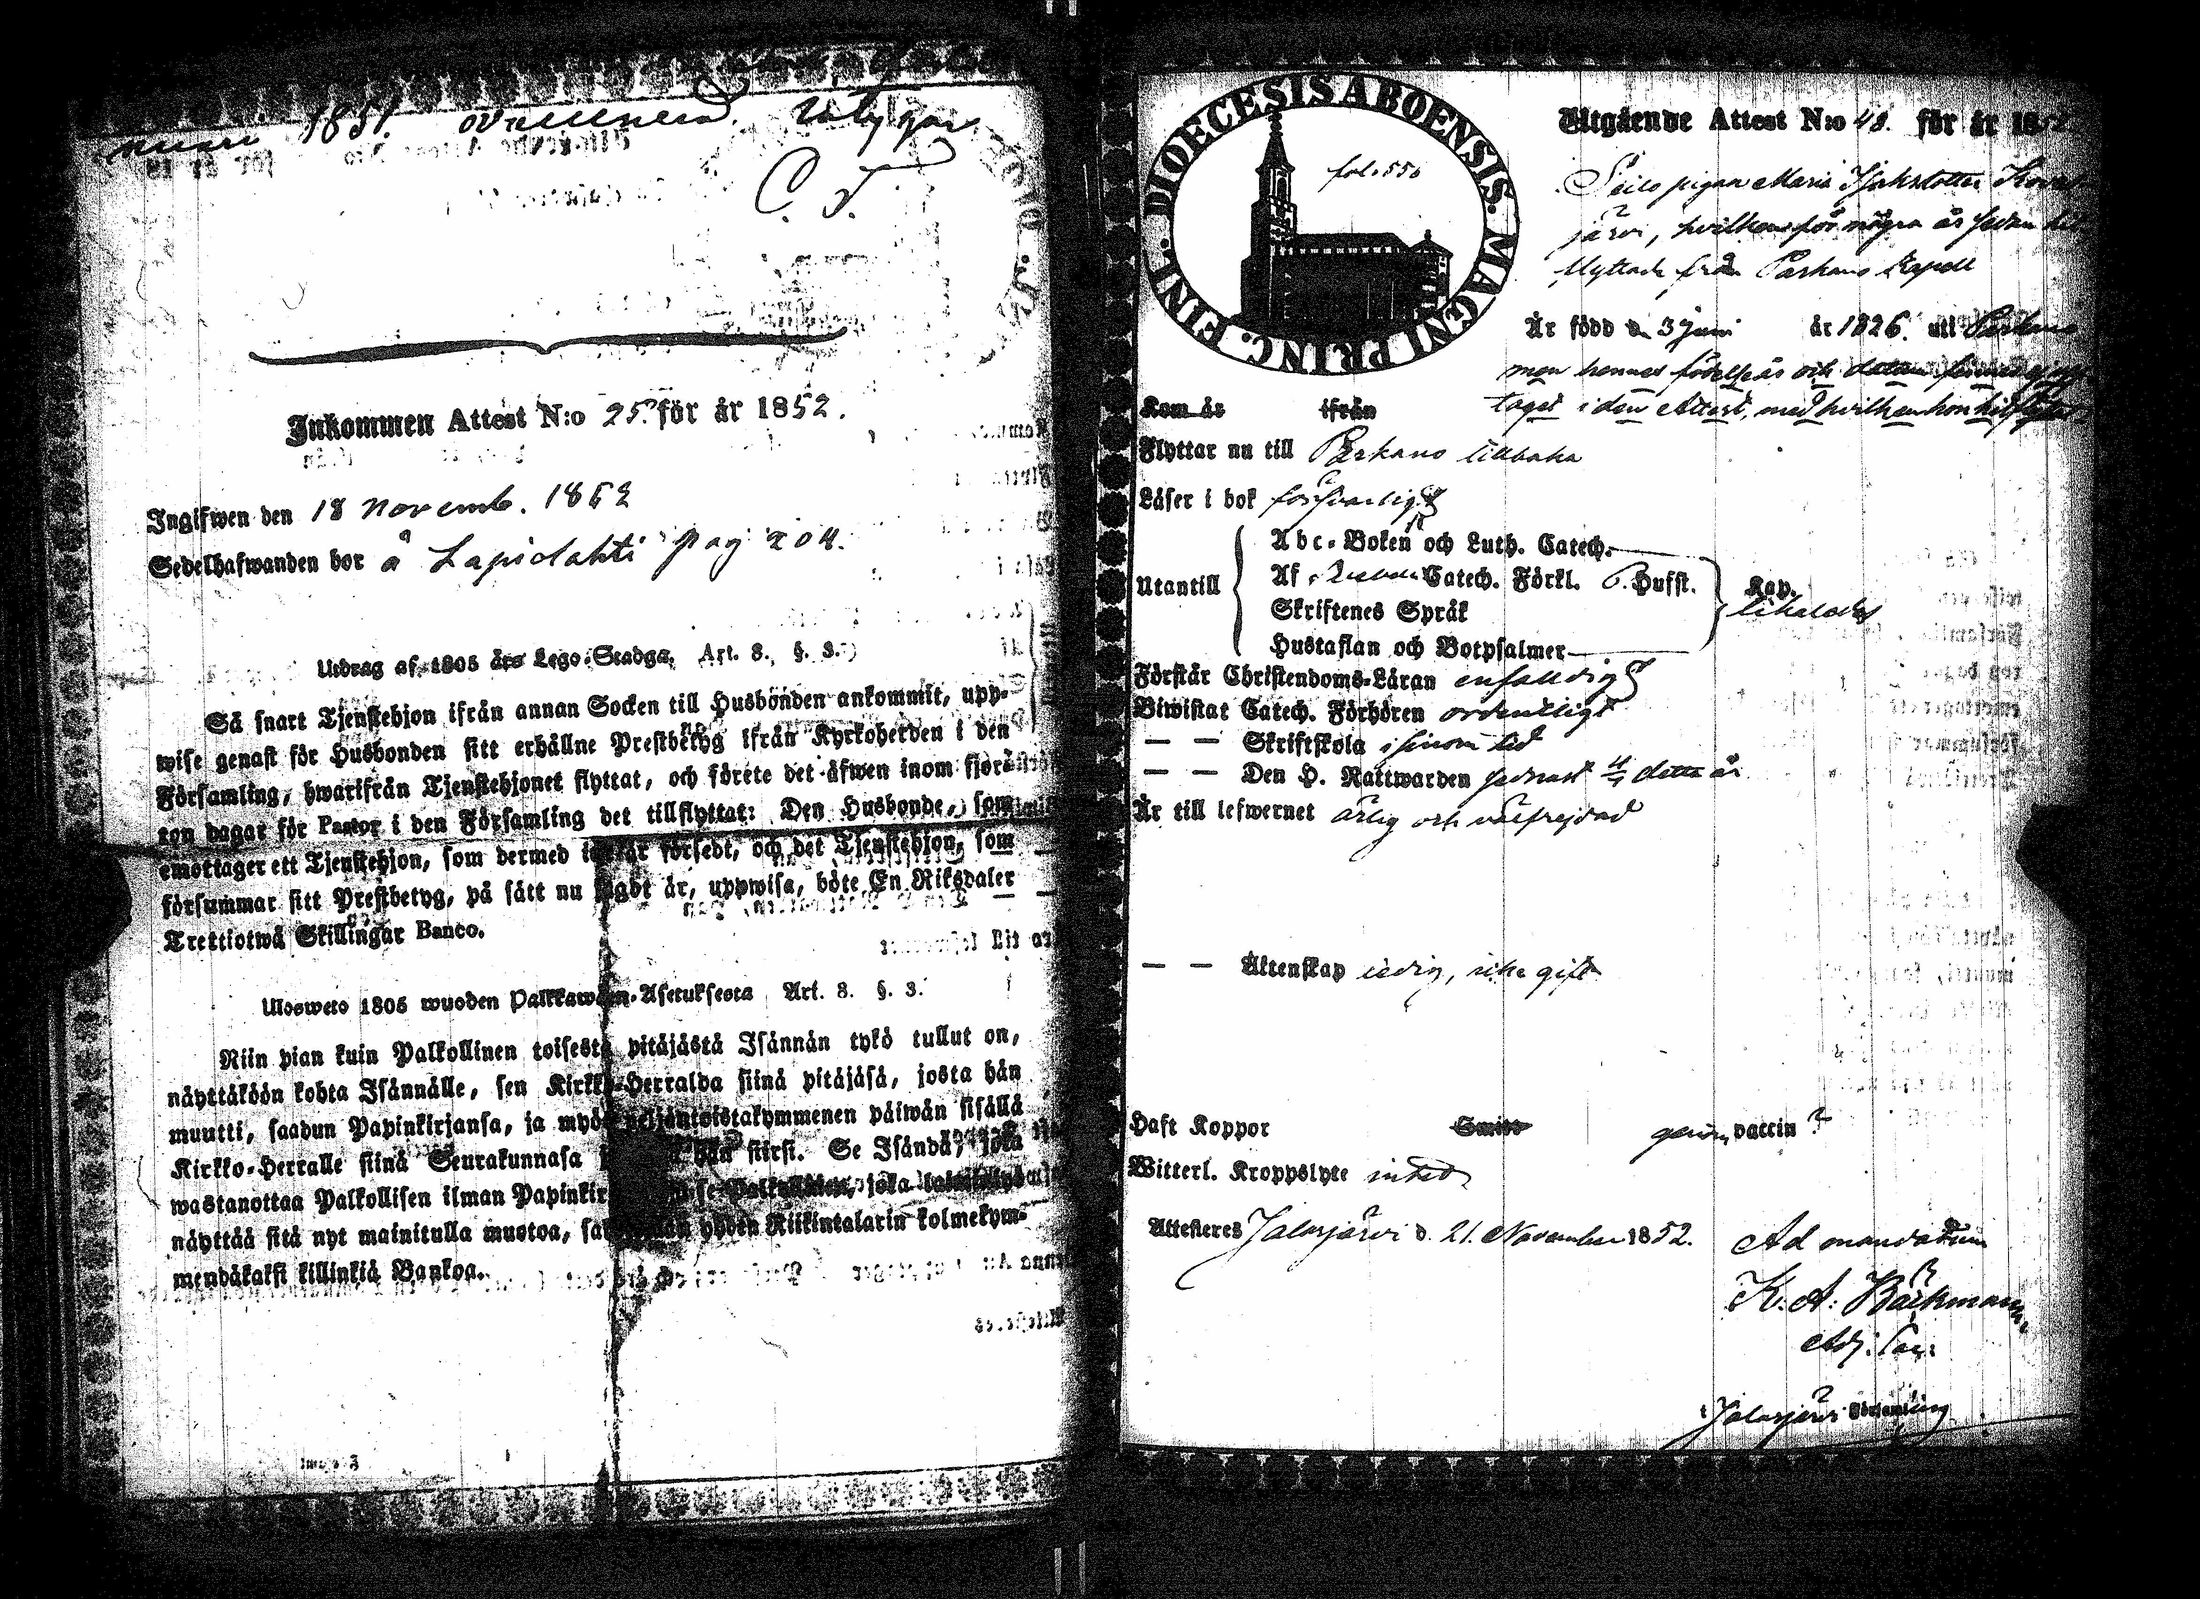 1851.
C. F.
Inkommen Attest N:o 25. för år 1852.
Ingifwen den 18 novemb. 1852
Sedelhafwanden bor å Lapidahti pag 204.
Utdrag af 1805 års Lego-Stadga, Art. 8. §. 3.
Så snart Tjenstehjon ifrån annan Socken till Husbonden ankommit, upp-
wise genast för Husbonden sitt erhållne Prestbetyg ifrån Kyrkoherden i den
Församling, hwarifrån Tjenstehjonet flyttat, och förete det äfwen inom fjor-
ton dagar för Pastor i den Församling det tillflyttat: Den Husbonde, som
emottager ett Tjenstehjon, som dermed försedt, och det Tjenstehjon, som
försummar sitt Prestbetyg, på sätt nu sagdt är, uppwisa, böte En Riksdaler
Trettiotwå Skillingar Banco.
Ulosweto 1805 wuoden Palkkawäen-Asetuksesta Art. 8. §. 3.
Niin pian kuin Palkollinen toisesta pitäjästä Isännän tykö tullut on,
näyttäköön kohta Isännälle, sen Kirkko-Herralda siinä pitäjäsä, josta hän
muutti, saadun Papinkirjansa, ja myös neljäntoistakymmenen päiwän sisällä
Kirkko-Herralle siinä Seurakunnasa hän siirsi. Se Isändä, joka
wastanottaa Palkollisen ilman Papinkir se Palkollinen, joka
näyttää sitä nyt mainitulla muotoa, yhden Riikintalarin kolmekym-
mendäkaksi killinkiä Bankoa.
DIOECESIS ABOENSIS. MAGNI PRINC. FINL.
fol. 550
Utgående Attest N:o 48. för år 1852
pigan Maria
järvi, hvilken för några år sedan hit
flyttade från Parkano Kapell
Är född d. 3 juni år 1826. uti Parkano
men hennes födelseår och datum
Kom år ifrån
taget i den Attest, med hvilken hon hit
Flyttar nu till Parkano tillbaka
Läser i bok försvarligt
Utantill
Abc-Boken och Luth. Catech.
Af Catech. Förkl. Hufst. Kap.
likaledes
Skriftenes Språk
Hustaflan och Botpsalmer
Förstår Christendoms-Läran enfaldigt
Biwistat Catech. Förhören ordentligt
— — Skriftskola i sinom tid
— — Den H. Nattwarden sednast detta år
Är till lefwernet ärlig och välfrejdad
— — Äktenskap ledig, icke gift
Haft Koppor genom vaccin
Witterl. Kroppslyte intet
Attesteres Jalasjärvi d. 21. November 1852.
Ad mandatum
K. A. Bäckman
Adj:
i Jalasjärvi Församling